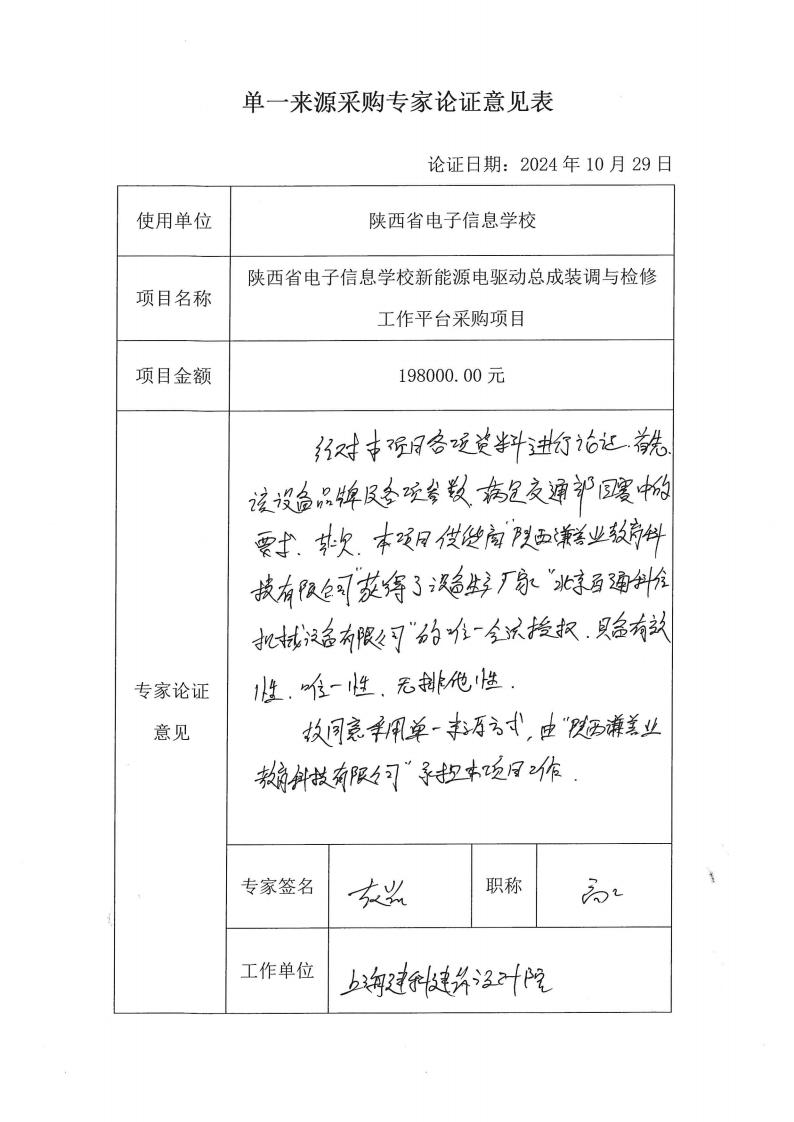 单一来源采购专家论证意见表
论证日期：2024 年 10 月 29 日
使用单位
陕西省电子信息学校
项目名称
陕西省电子信息学校新能源电驱动总成装调与检修
工作平台采购项目
项目金额
198000.00 元
专家论证
意见
经对本项目各项资料进行论证.首先.
该设备品牌及各项参数.满足交通部门需求的
要求.其次.本项目供货商"陕西谦善业教育科
技有限公司"获得了设备生产厂家"北京百通科信
机械设备有限公司"的唯一合法授权.具备有效
性.唯一性.无排他性.
故同意采用单一来源方式,由"陕西谦善业
教育科技有限公司"承担本项目工作.
专家签名
职称
高工
工作单位
上海建科建筑设计院